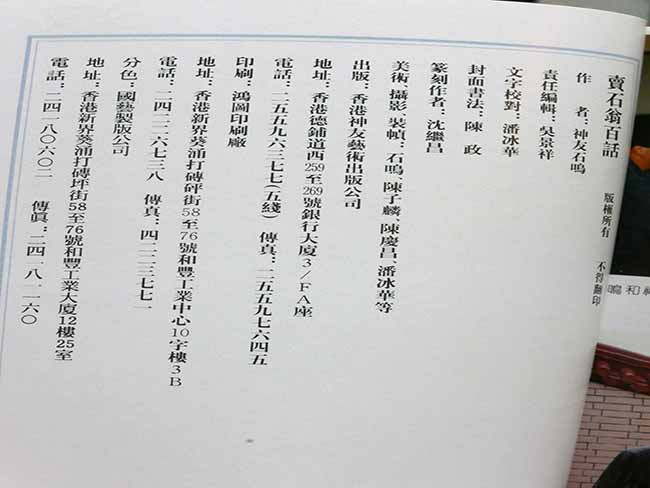 賣石翁百話
版權所有 不得翻印
作 者：神友石鳴
責任編輯：吳景祥
文字校對：潘冰華
封面書法：陳 政
篆刻作者：沈繼昌
美術、攝影、裝幀：石鳴、陳子麟、陳慶昌、潘冰華等
出版：香港神友藝術出版公司
地址：香港德鋪道西259至269號銀行大廈3/FA座
電話：二五五九六三七七(五綫) 傳真：二五五九七六四五
印刷：鴻圖印刷廠
地址：香港新界葵涌打磚砰街58至76號和豐工業中心10字樓3B
電話：二四二二六七三八 傳真：四二二三七七一
分色：國藝製版公司
地址：香港新界葵涌打磚坪街58至76號和豐工業大廈12樓25室
電話：二四一八〇六〇二 傳眞：二四一八一一六〇
鳴和神